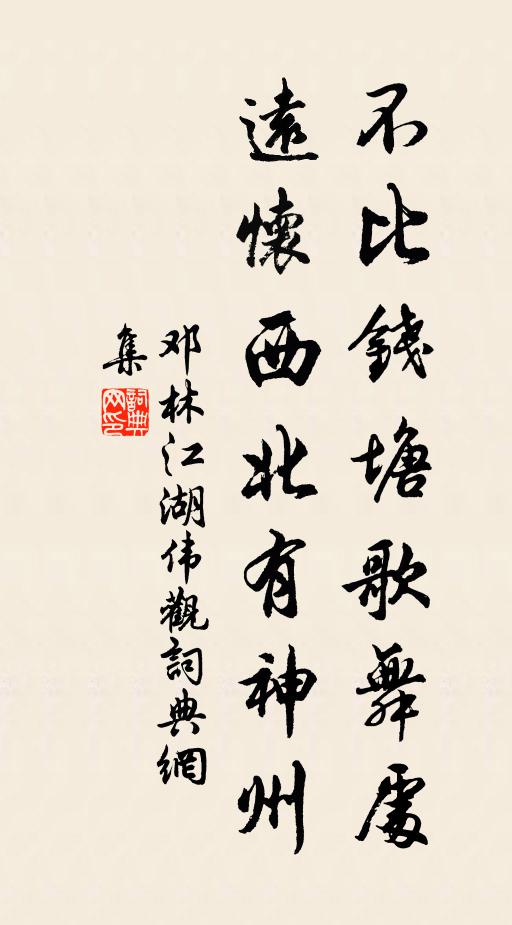 不比錢塘歌舞處
遠懷西北有神州
邓林江湖伟觀詞典網
集
詞典
网印